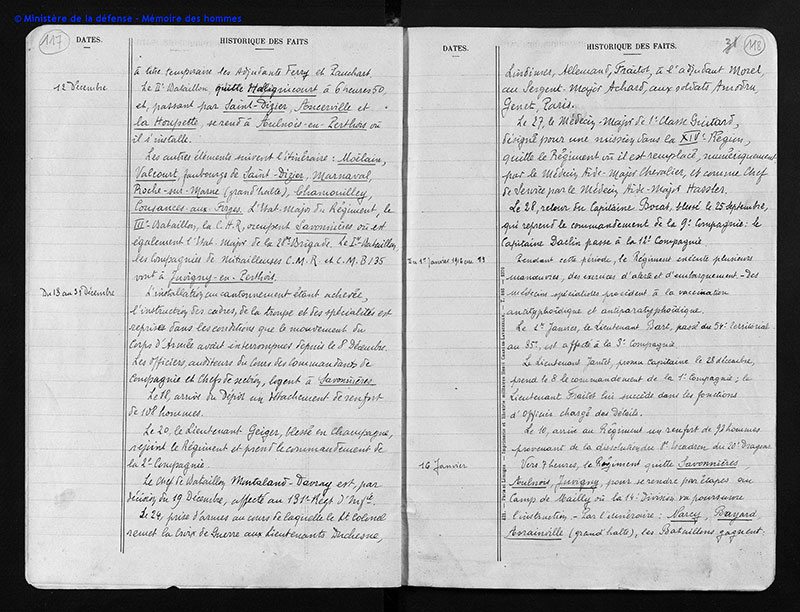 © Ministère de la défense - Mémoire des hommes
117
DATES.
HISTORIQUE DES FAITS
à titre temporaire les Adjudants Ferry et Panchart.
12 Décembre
Le IIe Bataillon, quitte Halignicourt à 6 heures 50,
et, passant par Saint-Dizier, Ancerville et
la Houpette, se rend à Aulnois-en-Perthois où
il s'installe.
Les autres éléments suivent l'itinéraire : Moëlain,
Valcourt, faubourgs de Saint-Dizier, Marnaval,
Roche-sur-Marne (grand'halte), Chamouilley,
Cousances-aux-Forges. L'Etat-Major du Régiment, le
IIIe Bataillon, la C.H.R. occupent Savonnières où est
également l'Etat-Major de la 28e Brigade. Le Ier Bataillon,
les Compagnies de Mitrailleuses C.M.R et C.M.B/35
vont à Juvigny-en-Perthois.
Du 13 au 31 Décembre
L'installation au cantonnement étant achevée,
l'instruction des cadres, de la troupe et des spécialités est
reprise dans les conditions que le mouvement du
Corps d'Armée avait interrompues depuis le 8 Décembre.
Les officiers, auditeurs du Cours des Commandants de
Compagnie et Chefs de section, logent à Savonnières.
Le 18, arrive du Dépôt un détachement de renfort
de 108 hommes.
Le 20, le Lieutenant Geiger, blessé en Champagne,
rejoint le Régiment et prend le commandement de
la 2e Compagnie.
Le Chef de Bataillon Montaland-Davray est, par
décision du 19 Décembre, affecté au 131e Régt d'Infie.
Le 24, prise d'armes au cours de laquelle le Lt Colonel
remet la Croix de Guerre aux Lieutenants Duchesne,
DATES.
HISTORIQUE DES FAITS.
118
Lindimer, Allemand, Fraitot, à l'adjudant Morel,
au Sergent-Major Achard, aux soldats
Genet, Paris.
Le 27, le Médecin-Major de 1e Classe Guitard,
désigné pour une mission dans la XIVe Région,
quitte le Régiment où il est remplacé, numériquement
par le Médecin Aide-Major Chevolier, et comme Chef
de Service par le Médecin Aide-Major Hassler.
Le 28, retour du Capitaine Bocat, blessé le 25 septembre,
qui reprend le commandement de la 9e Compagnie : le
Capitaine Darlin passe à la 12e Compagnie.
Du 1er Janvier 1916 au 15
Pendant cette période, le Régiment exécute plusieurs
manœuvres, des exercices d'alerte et d'embarquement. - Des
médecins spécialistes procèdent à la vaccination
antityphoïdique et antiparatyphoïdique.
Le 2 Janvier, le Lieutenant Bart, passé du 54e Territorial
au 35e, est affecté à la 3e Compagnie.
Le Lieutenant Jantet, promu Capitaine le 28 décembre,
prend le 8 le commandement de la 1e Compagnie ; le
Lieutenant Fraitot lui succède dans les fonctions
d'Officier chargé des Détails.
Le 10, arrive au Régiment un renfort de 92 hommes
provenant de la dissolution du escadron du 20e Dragons
16 Janvier
Vers 7 heures, le Régiment quitte Savonnières,
Aulnois, Juvigny, pour se rendre par étapes au
Camp de Mailly où la 14e Division va poursuivre
l'instruction. - Par l'itinéraire : Narcy, Bayard
(grand'halte), les Bataillons gagnent